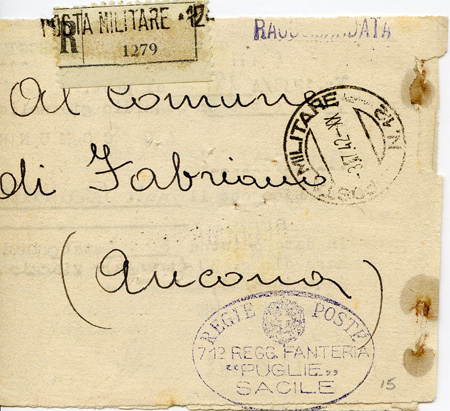 POSTA MILITARE · 12 ·
R
1279
RACCOMANDATA
Al Comune
di Fabriano
(Ancona)
POSTA MILITARE N.12
-3.7.42-XX
REGIE POSTE
71º REGG. FANTERIA
“PUGLIE„
SACILE
15